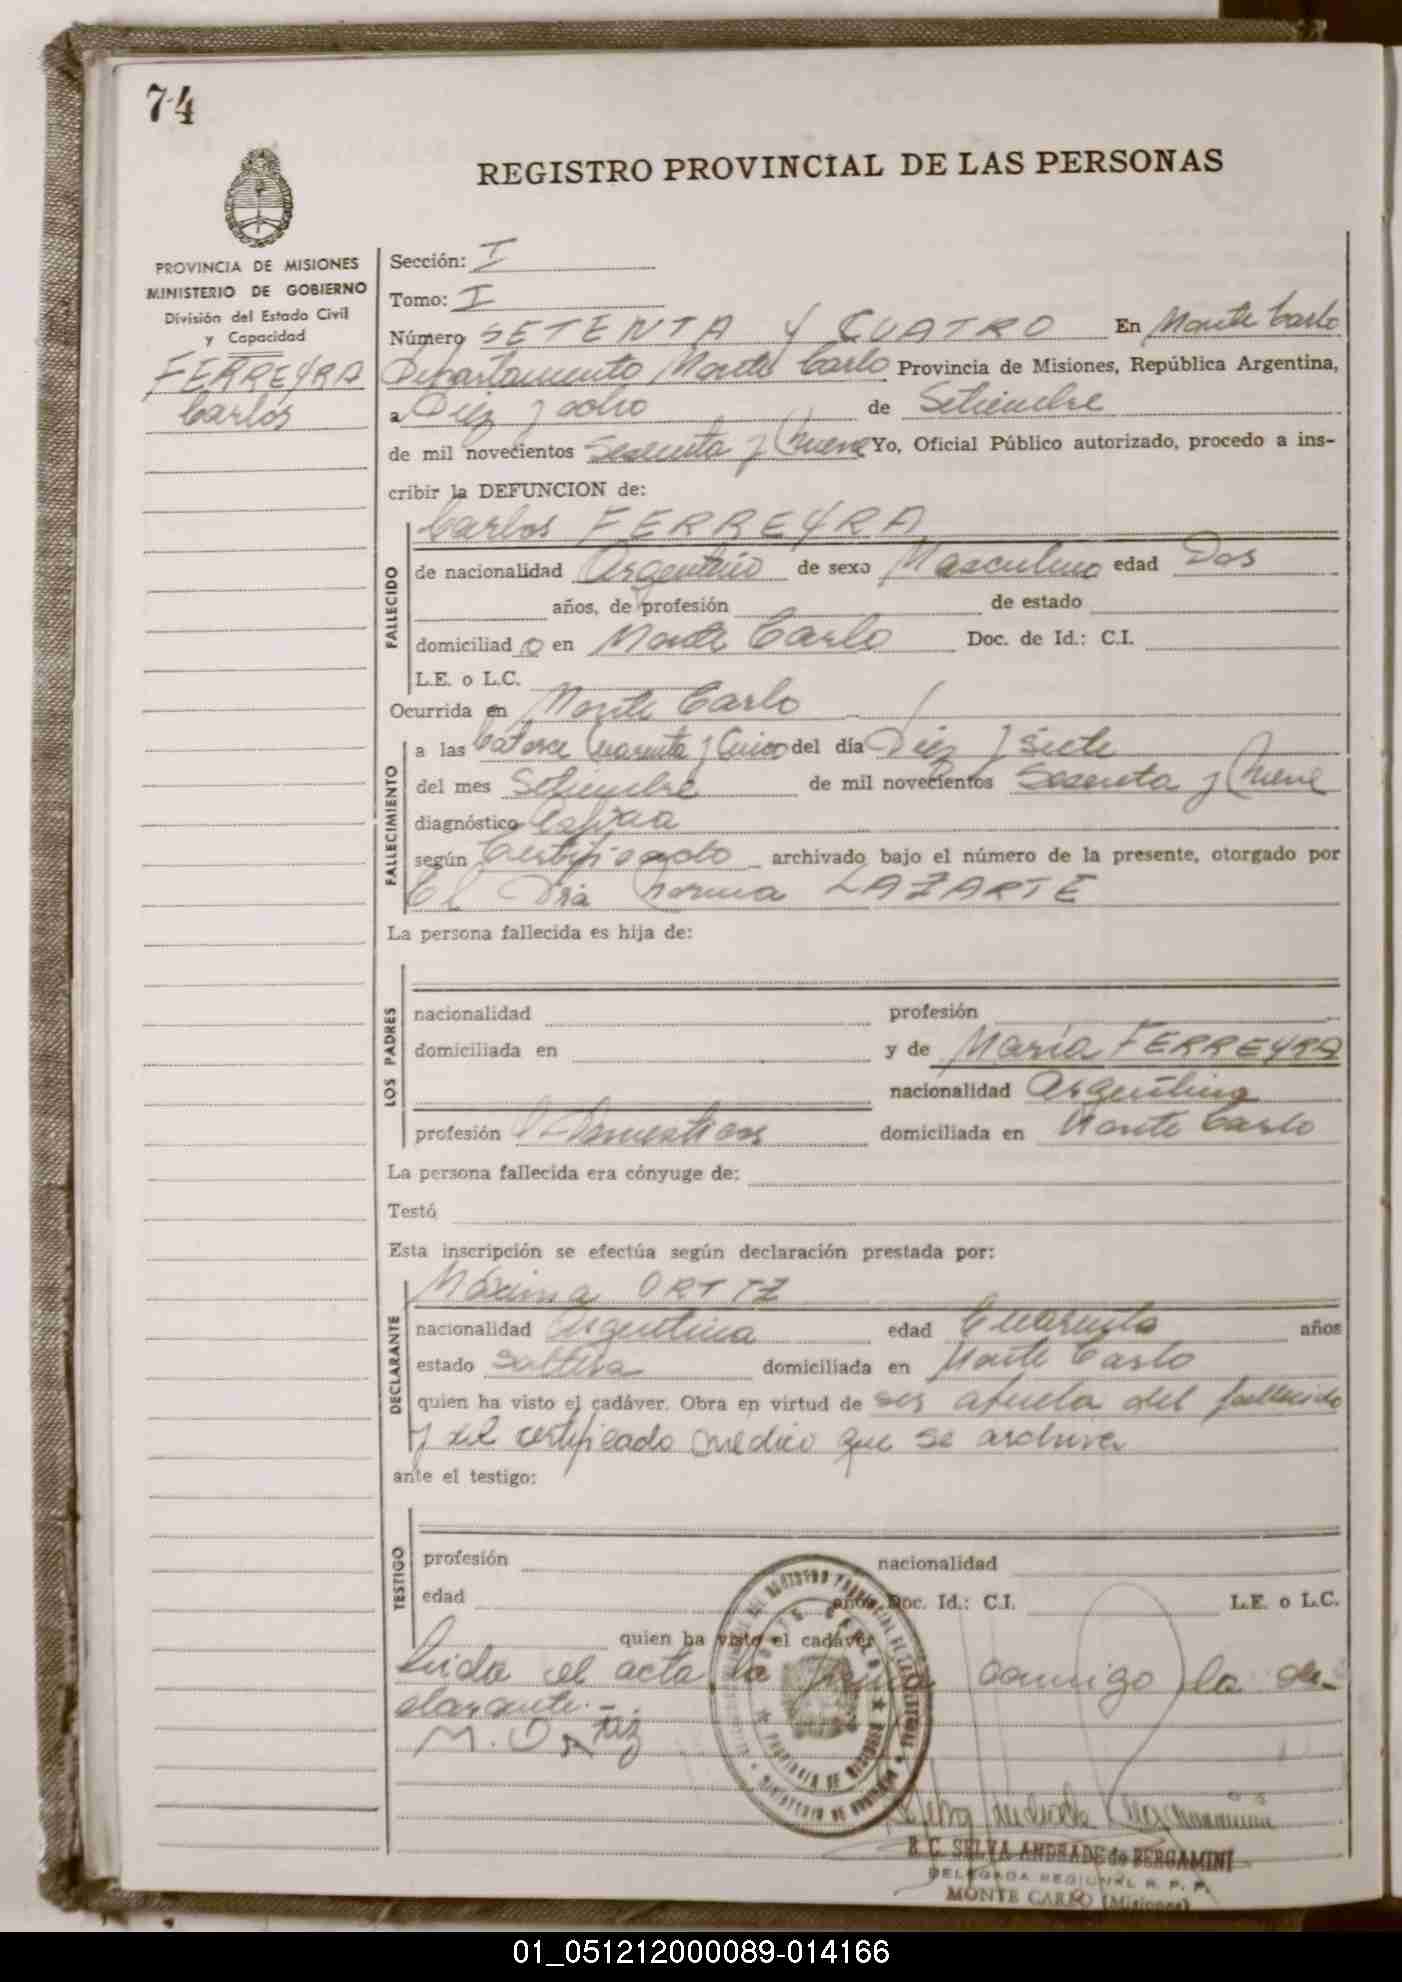 74
REGISTRO PROVINCIAL DE LAS PERSONAS
PROVINCIA DE MISIONES
MINISTERIO DE GOBIERNO
División del Estado Civil
y Capacidad
FERREYRA
Carlos
Sección: I
Tomo: I
Número SETENTA Y CUATRO En Monte Carlo
Departamento Monte Carlo Provincia de Misiones, República Argentina,
a Diez y ocho de Setiembre
de mil novecientos Sesenta y Nueve Yo, Oficial Público autorizado, procedo a ins-
cribir la DEFUNCION de:
Carlos FERREYRA
FALLECIDO
de nacionalidad Argentino de sexo Masculino edad Dos
años, de profesión de estado
domiciliado en Monte Carlo Doc. de Id.: C.I.
L.E. o L.C.
Ocurrida en Monte Carlo
FALLECIMIENTO
a las Catorce Cuarenta y Cinco del día Diez y Siete
del mes Setiembre de mil novecientos Sesenta y Nueve
diagnóstico
según Certificado archivado bajo el número de la presente, otorgado por
El Dra Norma LAZARTE
La persona fallecida es hija de:
LOS PADRES
nacionalidad profesión
domiciliada en y de María FERREYRA
nacionalidad Argentina
profesión domiciliada en Monte Carlo
La persona fallecida era cónyuge de:
Testó
Esta inscripción se efectúa según declaración prestada por:
Máxima ORTIZ
DECLARANTE
nacionalidad Argentina edad Cuarenta años
estado Soltera domiciliada en Monte Carlo
quien ha visto el cadáver. Obra en virtud de ser abuela del fallecido
y del certificado medico que se archiva
ante el testigo:
TESTIGO
profesión nacionalidad
edad años, Doc. Id.: C.I. L.E. o L.C.
quien ha visto el cadáver
Leida el acta la firma conmigo la de-
clarante.-
M. ORtiz
PROVINCIA DE MISIONES
B. C. SELVA ANDRADE de BERGAMINI
DELEGADA REGIONAL R. P. P.
MONTE CARLO (Misiones)
01_051212000089-014166